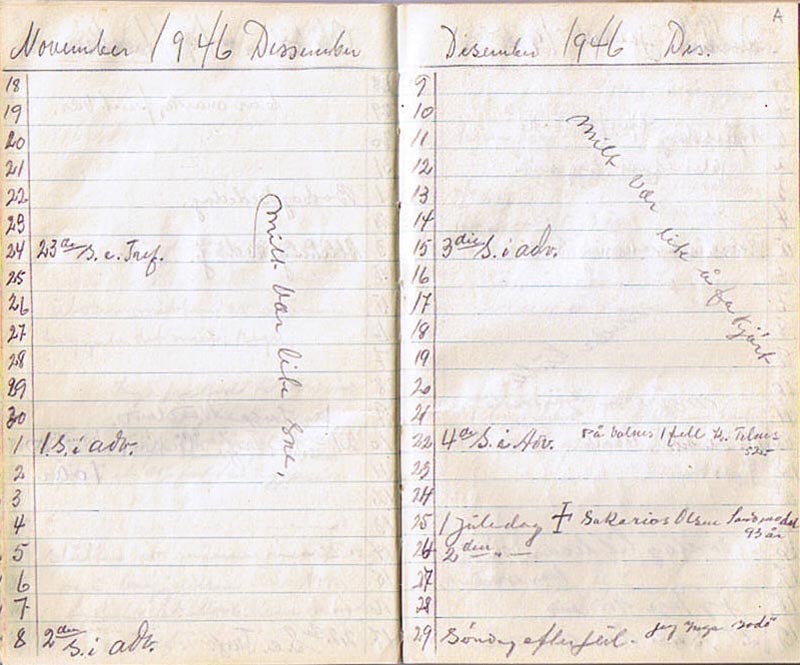 November 1946 Dessember
18
19
20
21
22
23
24 23de S. e. Tref.
25
26
27
28
29
30
1 1 S. i adv.
2
3
4
5
6
7
8 2den S. i adv.
Milt vær lite sne,
Desember 1946 Des.
A
9
10
11
12
13
14
15 3die S. i adv.
16
17
18
19
20
21
22 4de S. i Adv.
23
24
25 1 juledag ‡ Sakarias Olsen
93 år
26 2den " —
27
28
29 Søndag efter jul. jeg Inga
Milt vær lite å